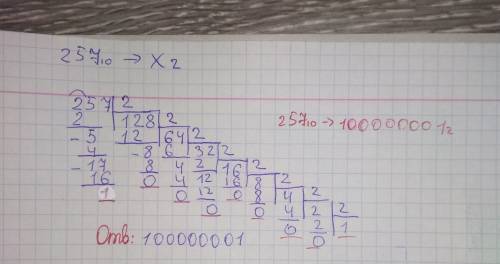 257₁₀ → X₂
257 2
2 128 2
-5 12 64 2
4 -8 6 32 2
-17 8 4 2 16 2
16 0 4 12 16 8 2
1 0 12 0 8 4 2
0 0 4 2 2
0 2 1
0
257₁₀ → 100000001₂
Отв: 100000001